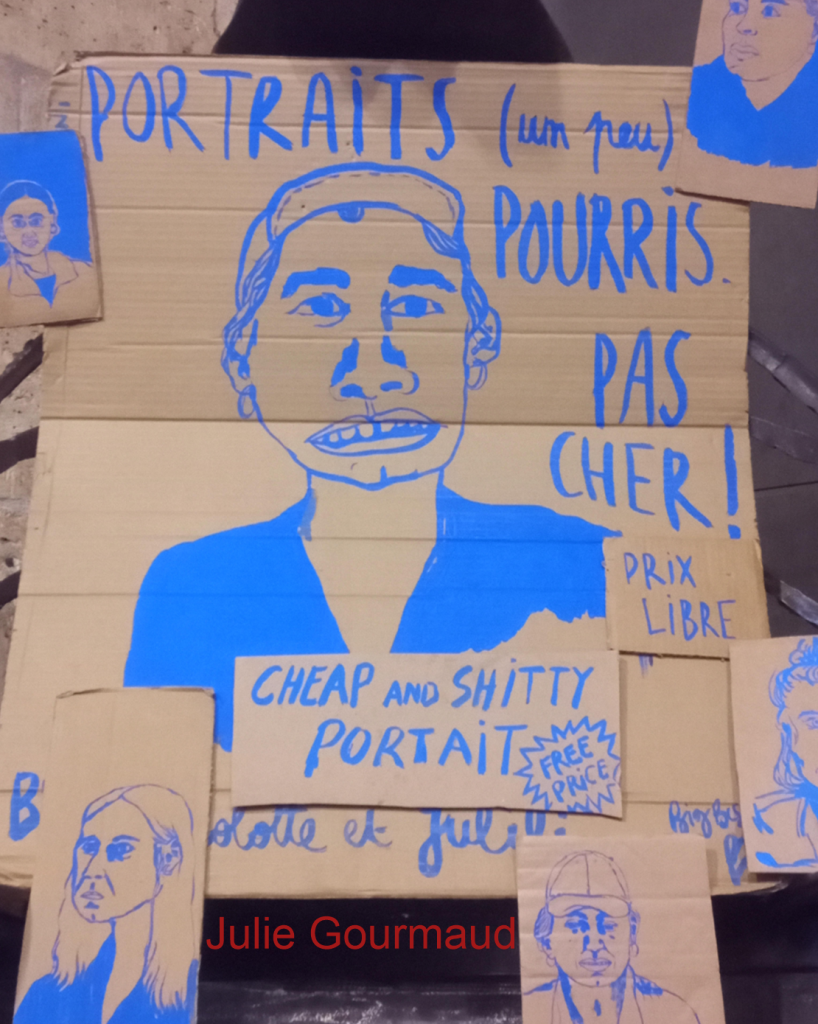 PORTRAITS (un peu)
POURRIS.
PAS
CHER!
PRIX
LIBRE
CHEAP AND SHITTY
PORTAIT
FREE
PRICE
B
olotte et Juli
Julie Gourmaud